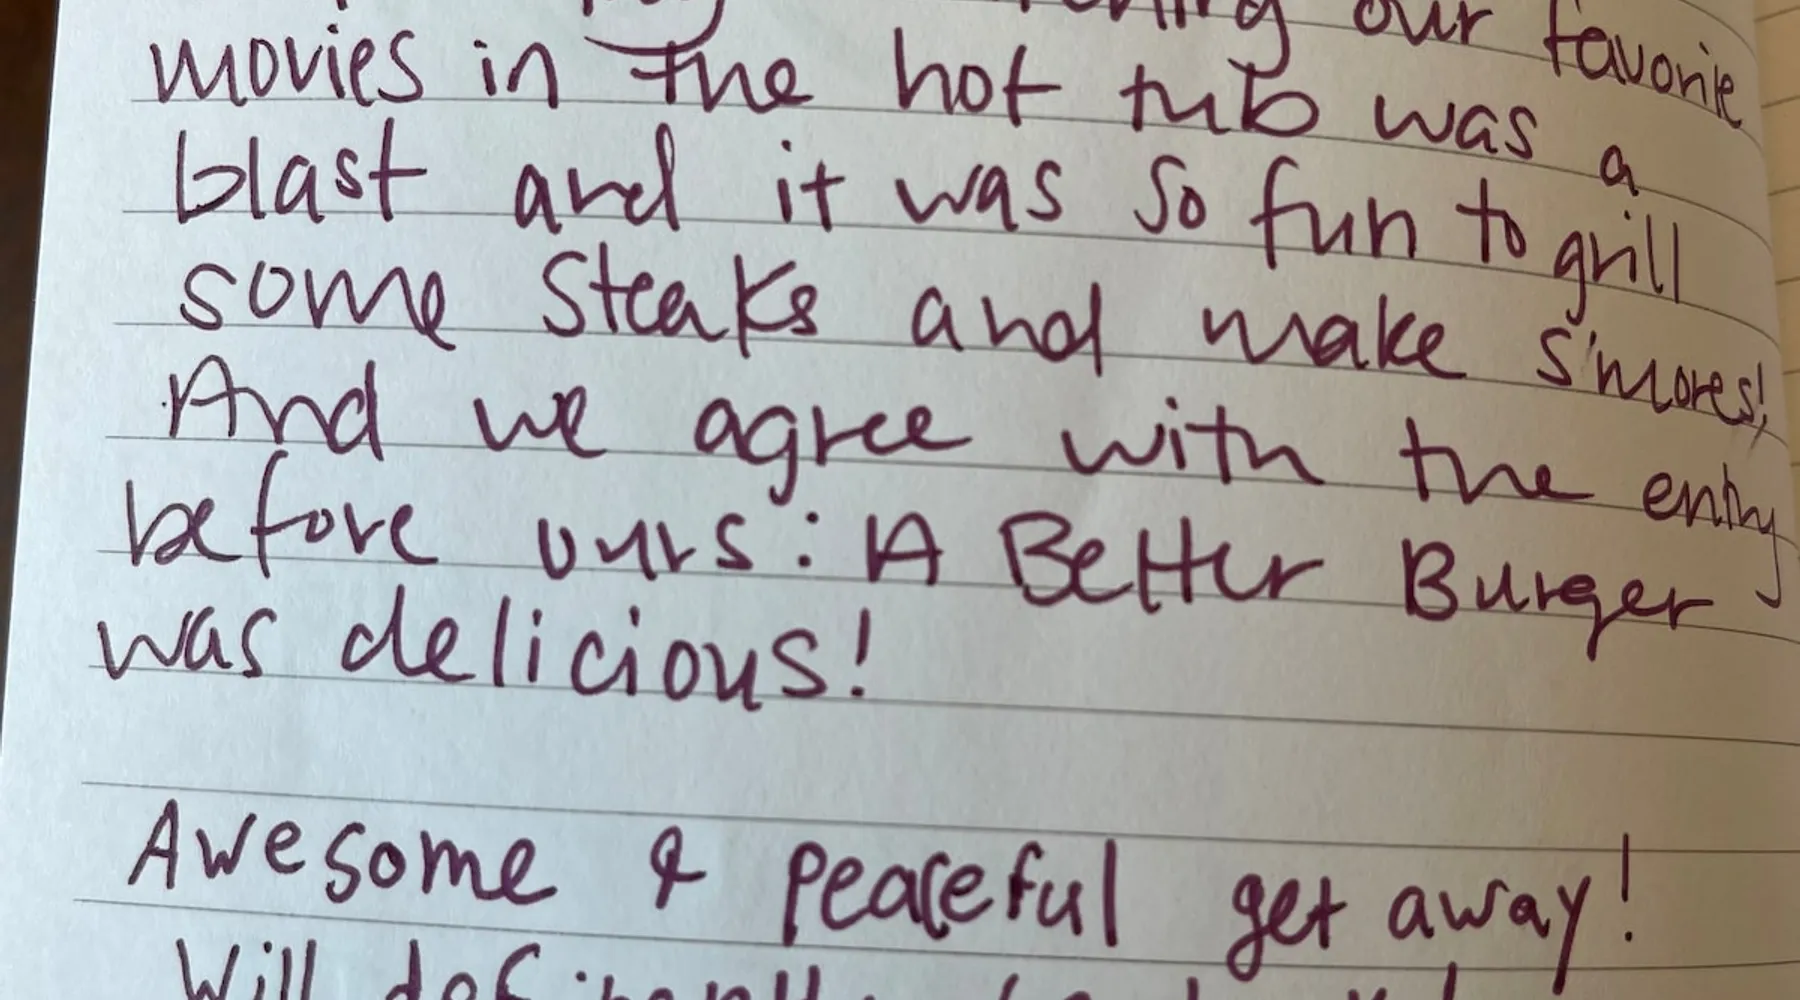 our favorite
movies in the hot tub was a
blast and it was so fun to grill
some steaks and make s'mores!
And we agree with the entry
before ours: A Better Burger
was delicious!
Awesome & peaceful get away!
Will